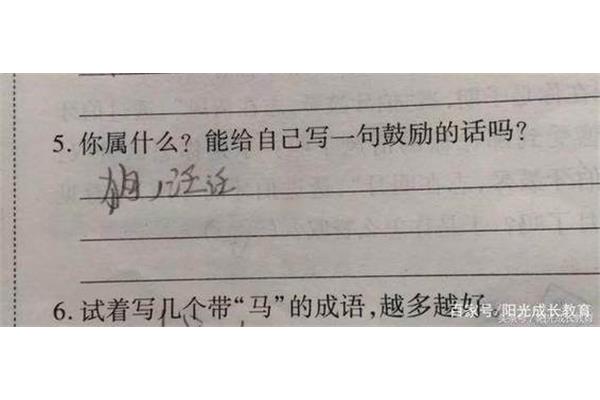 5. 你属什么？能给自己写一句鼓励的话吗？
汪汪
6. 试着写几个带“马”的成语，越多越好。
百家号/阳光成长教育